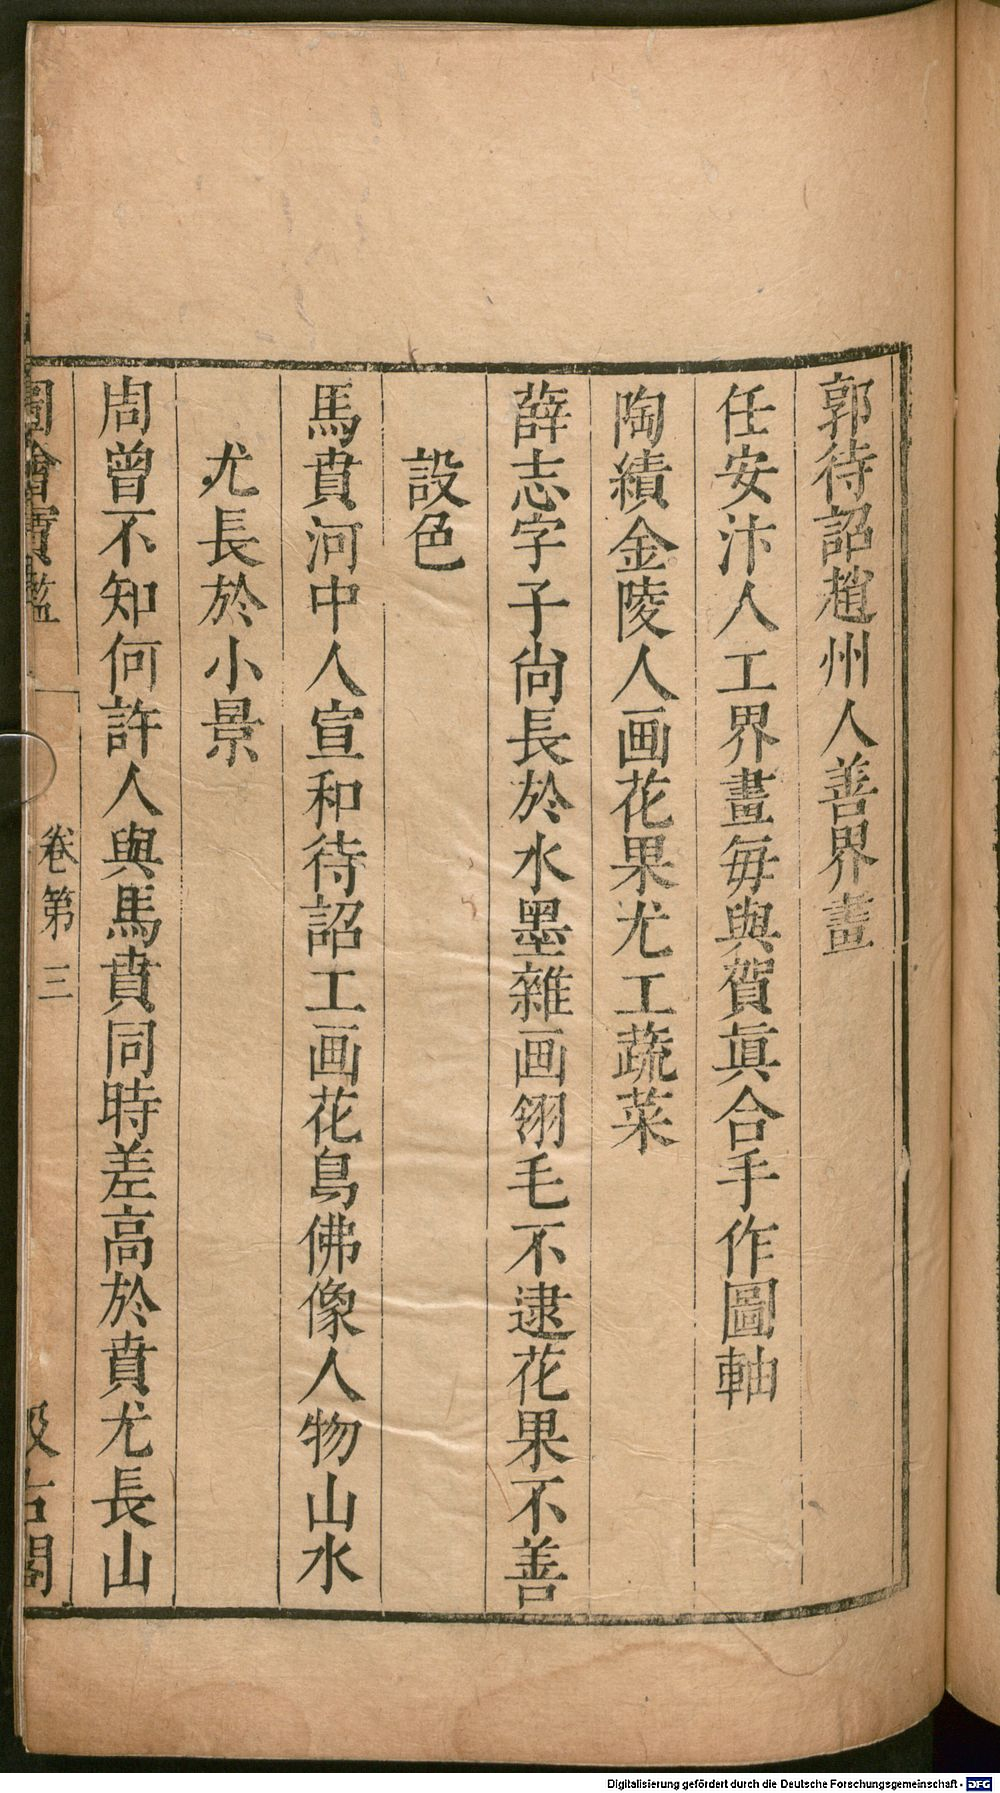 郭待詔趙州人善界畫
任安汴人工界畫每與賀眞合手作圖軸
陶績金陵人画花果尤工蔬菜
薛志字子尚長於水墨雜画翎毛不逮花果不善
設色
馬賁河中人宣和待詔工画花鳥佛像人物山水
尤長於小景
周曾不知何許人與馬賁同時差高於賁尤長山
圖繪寶鑑 卷第三 汲古閣
Digitalisierung gefördert durch die Deutsche Forschungsgemeinschaft - DFG